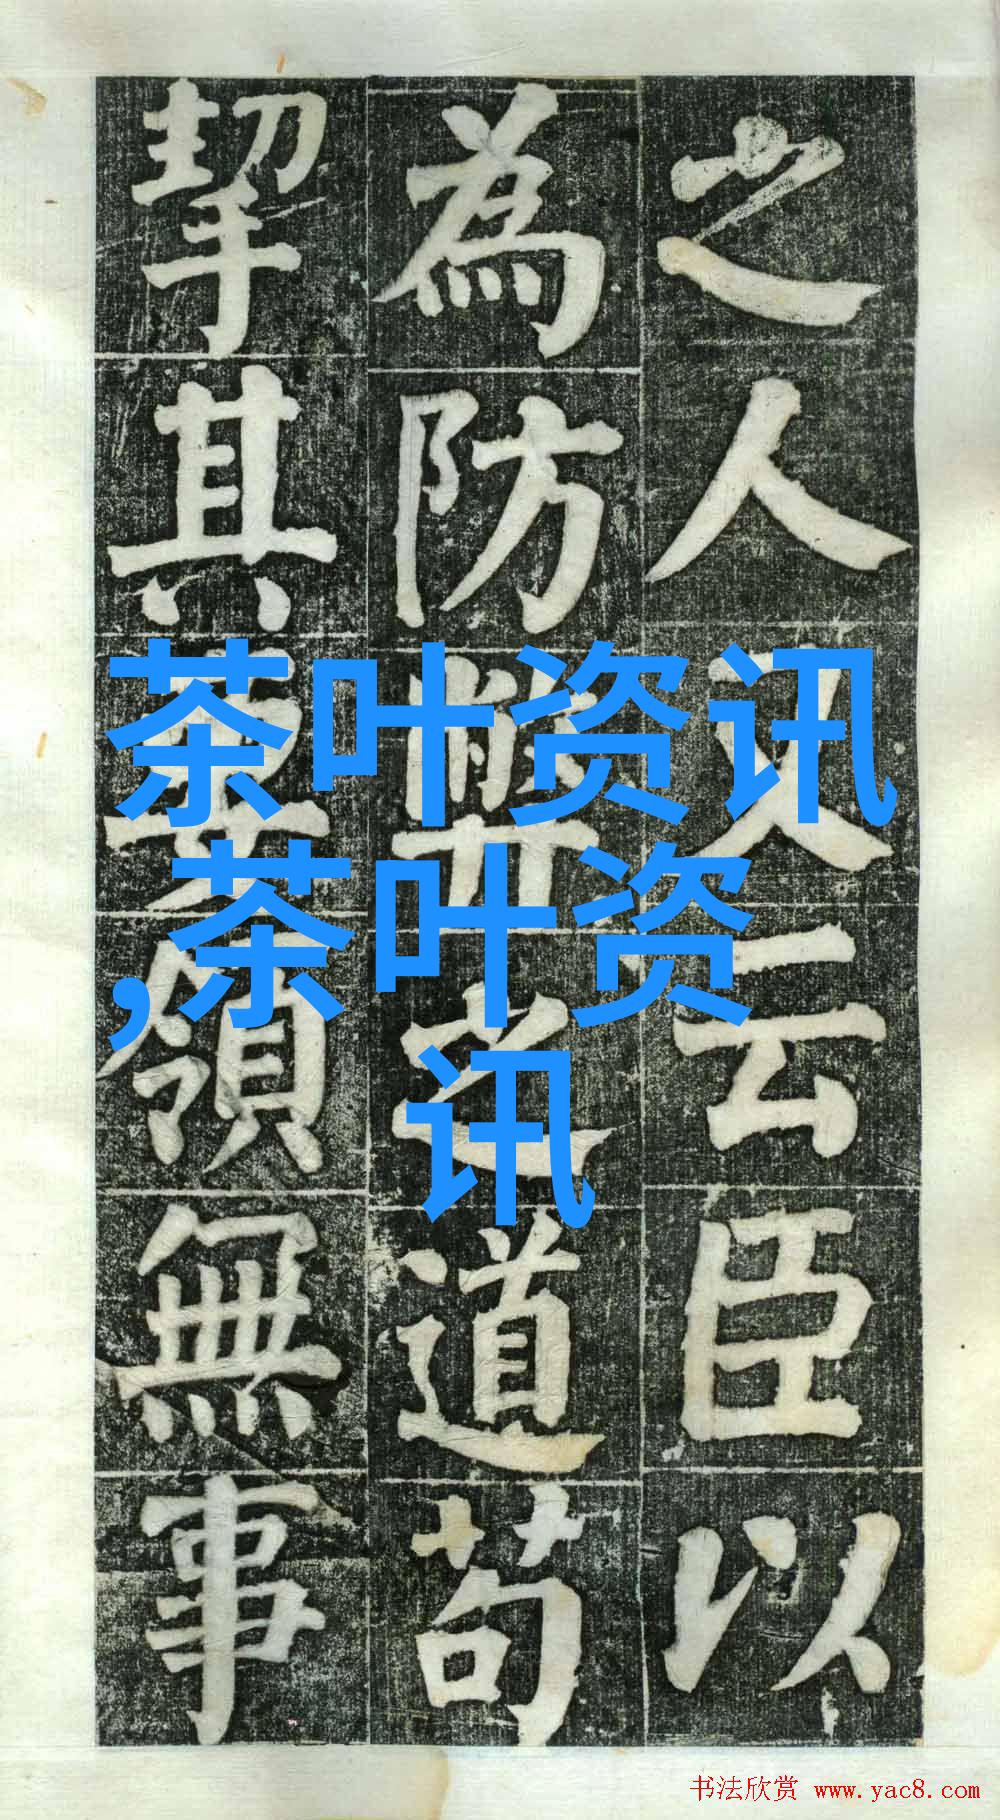 之人又云臣以
為防弊之道苟
挈其要領無事
茶叶资讯
,茶叶资
讯
书法欣赏 www.yac8.com